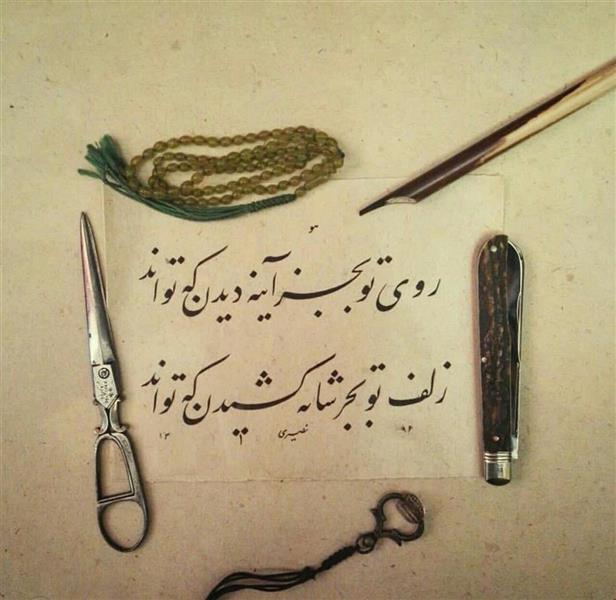 هو
روی تو بجز آینه دیدن که تواند
زلف تو بجز شانه کشیدن که تواند
نصیری
۱۳ ۹۲